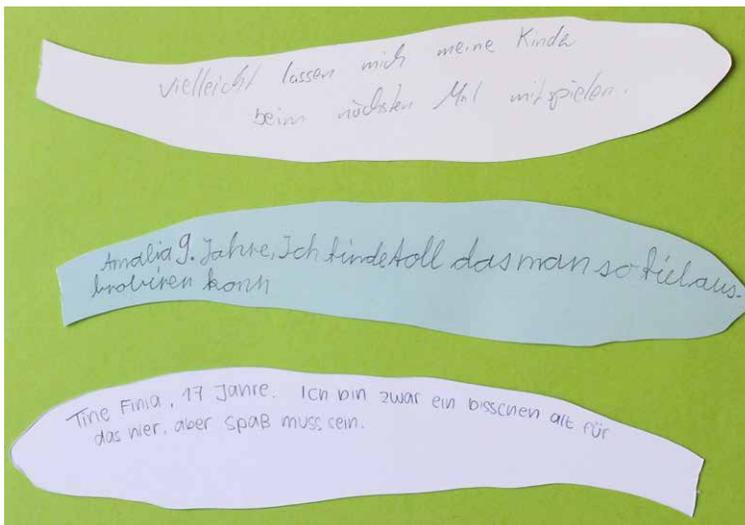 Vielleicht lassen mich meine Kinder
beim nächsten Mal mitspielen.
Amalia 9. Jahre, Ich finde toll das man so fiel aus-
brobiren kann
Tine Finia, 17 Jahre. Ich bin zwar ein bisschen alt für
das hier, aber Spaß muss sein.